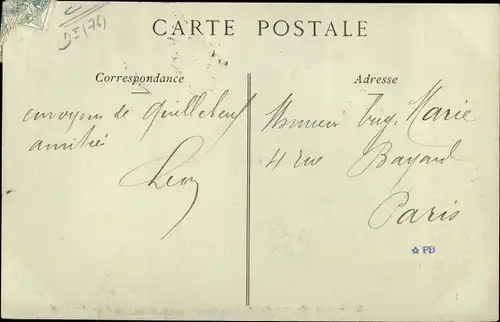 DT (76)
CARTE POSTALE
Correspondance
envoyons de Quillebeuf
amitié
Léon
Adresse
Monsieur Eug. Marie
4 rue Bayard
Paris
PB